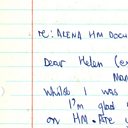 re: ALENA HM DOCU
Dear Helen (e
Man
Whilst I was
I'm glad
on HM. Are